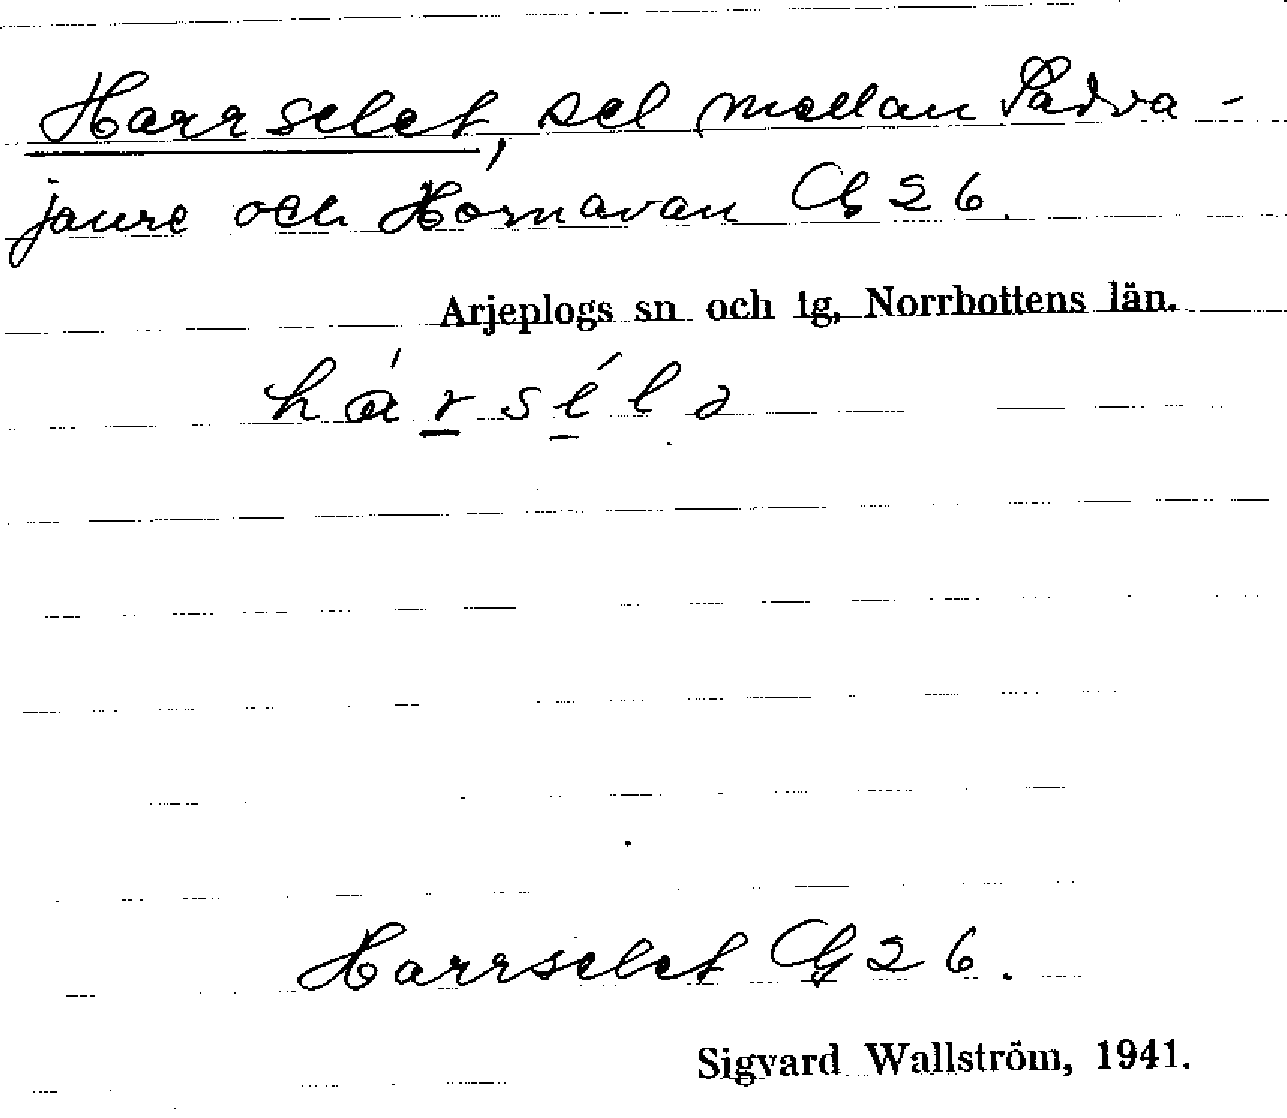 Harrselet, sel mellan Sädva-
jaure och Hornavan G 26.
Arjeplogs sn och tg, Norrbottens län.
Harrselet G 26.
Sigvard Wallström, 1941.